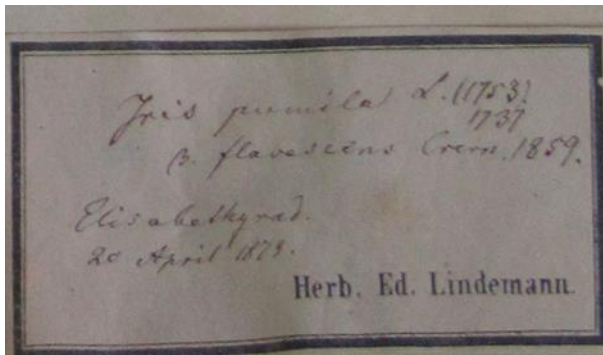 Iris pumila L. (1753)
1737
β. flavescens Czern. 1859.
Elisabethgrad.
20 April 1873.
Herb. Ed. Lindemann.